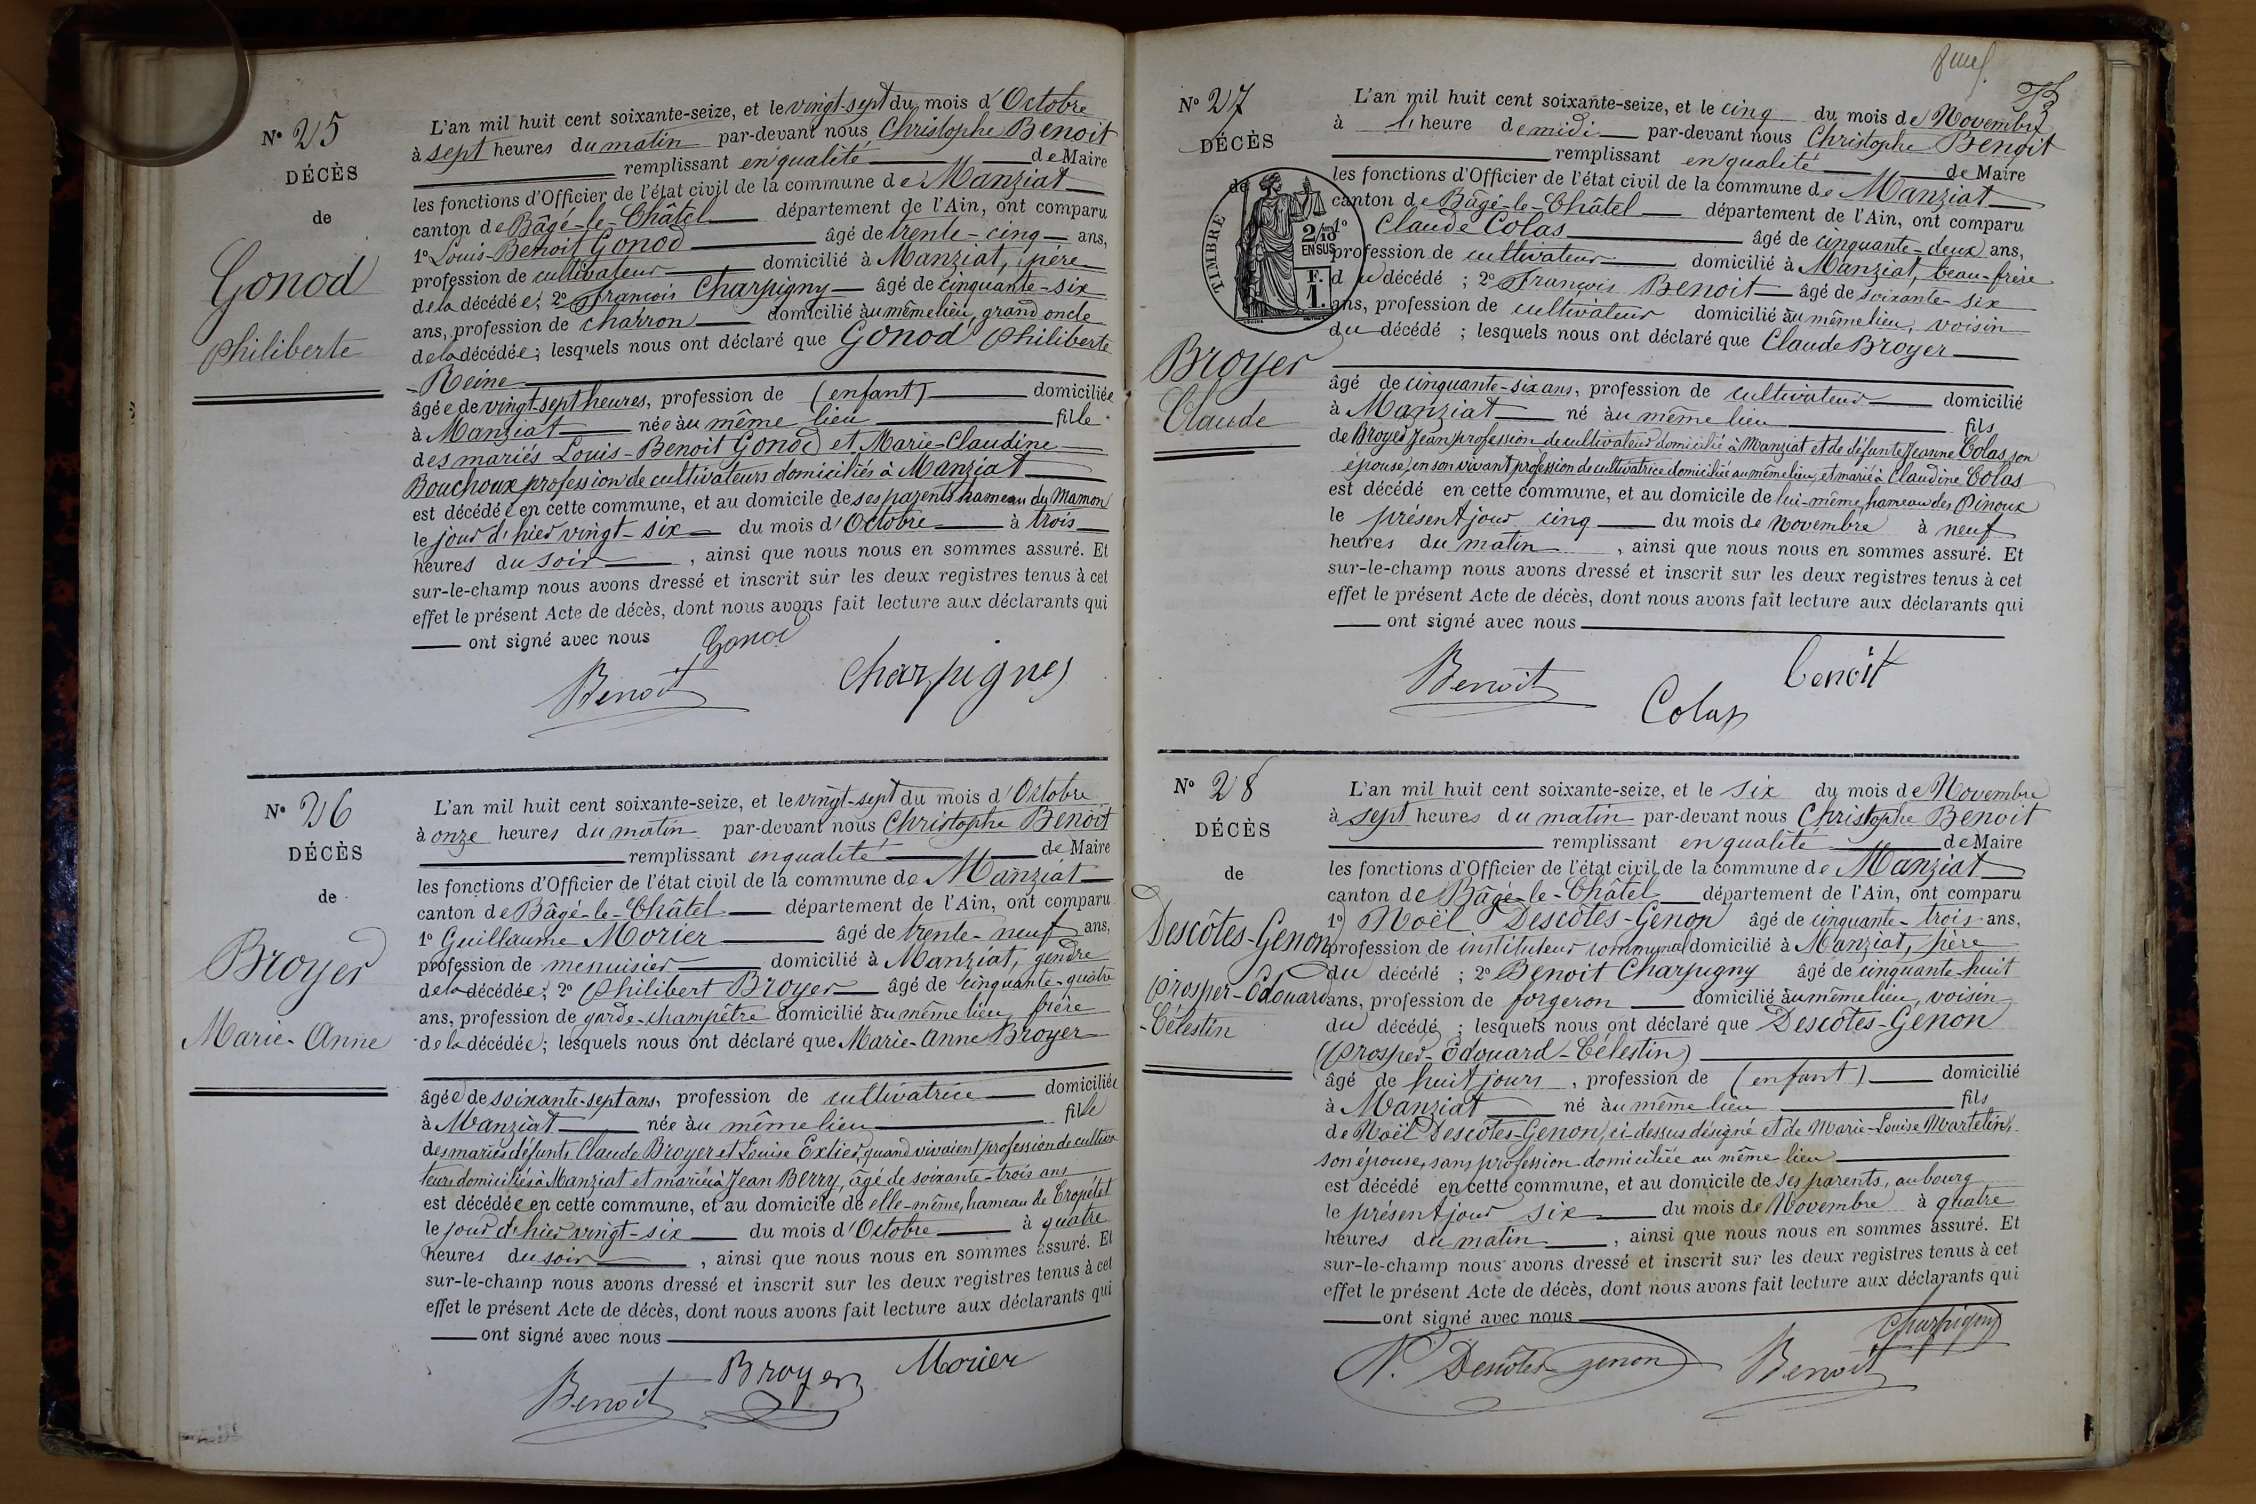 N° 25
DÉCÈS
de
Gonod
Philiberte
L'an mil huit cent soixante-seize, et le vingt-sept du mois d'Octobre
à sept heures du matin par-devant nous Christophe Benoit
remplissant en qualité de Maire
les fonctions d'Officier de l'état civil de la commune de Manziat
canton de Bâgé-le-Châtel département de l'Ain, ont comparu
1° Louis-Benoit Gonod âgé de trente-cinq ans,
profession de cultivateur domicilié à Manziat, père
de la décédée; 2° François Charpigny âgé de cinquante-six
ans, profession de charron domicilié au même lieu, grand oncle
de la décédée; lesquels nous ont déclaré que Gonod Philiberte
-Reine
âgée de vingt-sept heures, profession de (enfant) domiciliée
à Manziat née au même lieu fille
des mariés Louis-Benoit Gonod et Marie-Claudine
Bouchoux profession de cultivateurs domiciliés à Manziat
est décédée en cette commune, et au domicile de ses parents hameau du Mamon
le jour d'hier vingt-six du mois d'Octobre à trois
heures du soir, ainsi que nous nous en sommes assuré. Et
sur-le-champ nous avons dressé et inscrit sur les deux registres tenus à cet
effet le présent Acte de décès, dont nous avons fait lecture aux déclarants qui
ont signé avec nous
Gonod
Benoit Charpigny
N° 26
DÉCÈS
de
Broyer
Marie-Anne
L'an mil huit cent soixante-seize, et le vingt-sept du mois d'Octobre
à onze heures du matin par-devant nous Christophe Benoit
remplissant en qualité de Maire
les fonctions d'Officier de l'état civil de la commune de Manziat
canton de Bâgé-le-Châtel département de l'Ain, ont comparu
1° Guillaume Morier âgé de trente-neuf ans,
profession de menuisier domicilié à Manziat, gendre
de la décédée; 2° Philibert Broyer âgé de cinquante-quatre
ans, profession de garde-champêtre domicilié au même lieu, frère
de la décédée; lesquels nous ont déclaré que Marie-Anne Broyer
âgée de soixante-sept ans, profession de cultivatrice domiciliée
à Manziat née au même lieu fille
des mariés défunts Claude Broyer et Louise Extier, quand vivaient profession de cultiva-
teurs domiciliés à Manziat et mariée à Jean Berry, âgé de soixante-trois ans
est décédée en cette commune, et au domicile de elle-même, hameau de Cropétet
le jour d'hier vingt-six du mois d'Octobre à quatre
heures du soir, ainsi que nous nous en sommes assuré. Et
sur-le-champ nous avons dressé et inscrit sur les deux registres tenus à cet
effet le présent Acte de décès, dont nous avons fait lecture aux déclarants qui
ont signé avec nous
Benoit Broyer Morier
N° 27
DÉCÈS
de
TIMBRE
2/10 EN SUS
F. 1.
Broyer
Claude
L'an mil huit cent soixante-seize, et le cinq du mois de Novembre
à 1 heure de midi par-devant nous Christophe Benoit
remplissant en qualité de Maire
les fonctions d'Officier de l'état civil de la commune de Manziat
canton de Bâgé-le-Châtel département de l'Ain, ont comparu
1° Claude Colas âgé de cinquante-deux ans,
profession de cultivateur domicilié à Manziat, beau-frère
du décédé; 2° François Benoit âgé de soixante-six
ans, profession de cultivateur domicilié au même lieu, voisin
du décédé; lesquels nous ont déclaré que Claude Broyer
âgé de cinquante-six ans, profession de cultivateur domicilié
à Manziat né au même lieu fils
de Broyer Jean profession de cultivateur domicilié à Manziat et de défunte Jeanne Colas, son
épouse, en son vivant profession de cultivatrice domiciliée au même lieu, et marié à Claudine Colas
est décédé en cette commune, et au domicile de lui-même, hameau des Pinoux
le présent jour cinq du mois de Novembre à neuf
heures du matin, ainsi que nous nous en sommes assuré. Et
sur-le-champ nous avons dressé et inscrit sur les deux registres tenus à cet
effet le présent Acte de décès, dont nous avons fait lecture aux déclarants qui
ont signé avec nous
Benoit Colas benoit
N° 28
DÉCÈS
de
Descôtes-Genon
Prosper-Edouard
-Célestin
L'an mil huit cent soixante-seize, et le six du mois de Novembre
à sept heures du matin par-devant nous Christophe Benoit
remplissant en qualité de Maire
les fonctions d'Officier de l'état civil de la commune de Manziat
canton de Bâgé-le-Châtel département de l'Ain, ont comparu
1° Noël Descôtes-Genon âgé de cinquante-trois ans,
profession de instituteur communal domicilié à Manziat, père
du décédé; 2° Benoit Charpigny âgé de cinquante-huit
ans, profession de forgeron domicilié au même lieu, voisin
du décédé; lesquels nous ont déclaré que Descôtes-Genon
(Prosper-Edouard-Célestin)
âgé de huit jours, profession de (enfant) domicilié
à Manziat né au même lieu fils
de Noël Descôtes-Genon, ci-dessus désigné et de Marie-Louise Martelin,
son épouse, sans profession domiciliée au même lieu
est décédé en cette commune, et au domicile de ses parents, au bourg
le présent jour six du mois de Novembre à quatre
heures du matin, ainsi que nous nous en sommes assuré. Et
sur-le-champ nous avons dressé et inscrit sur les deux registres tenus à cet
effet le présent Acte de décès, dont nous avons fait lecture aux déclarants qui
ont signé avec nous
Charpigny
N. Descôtes-genon Benoit